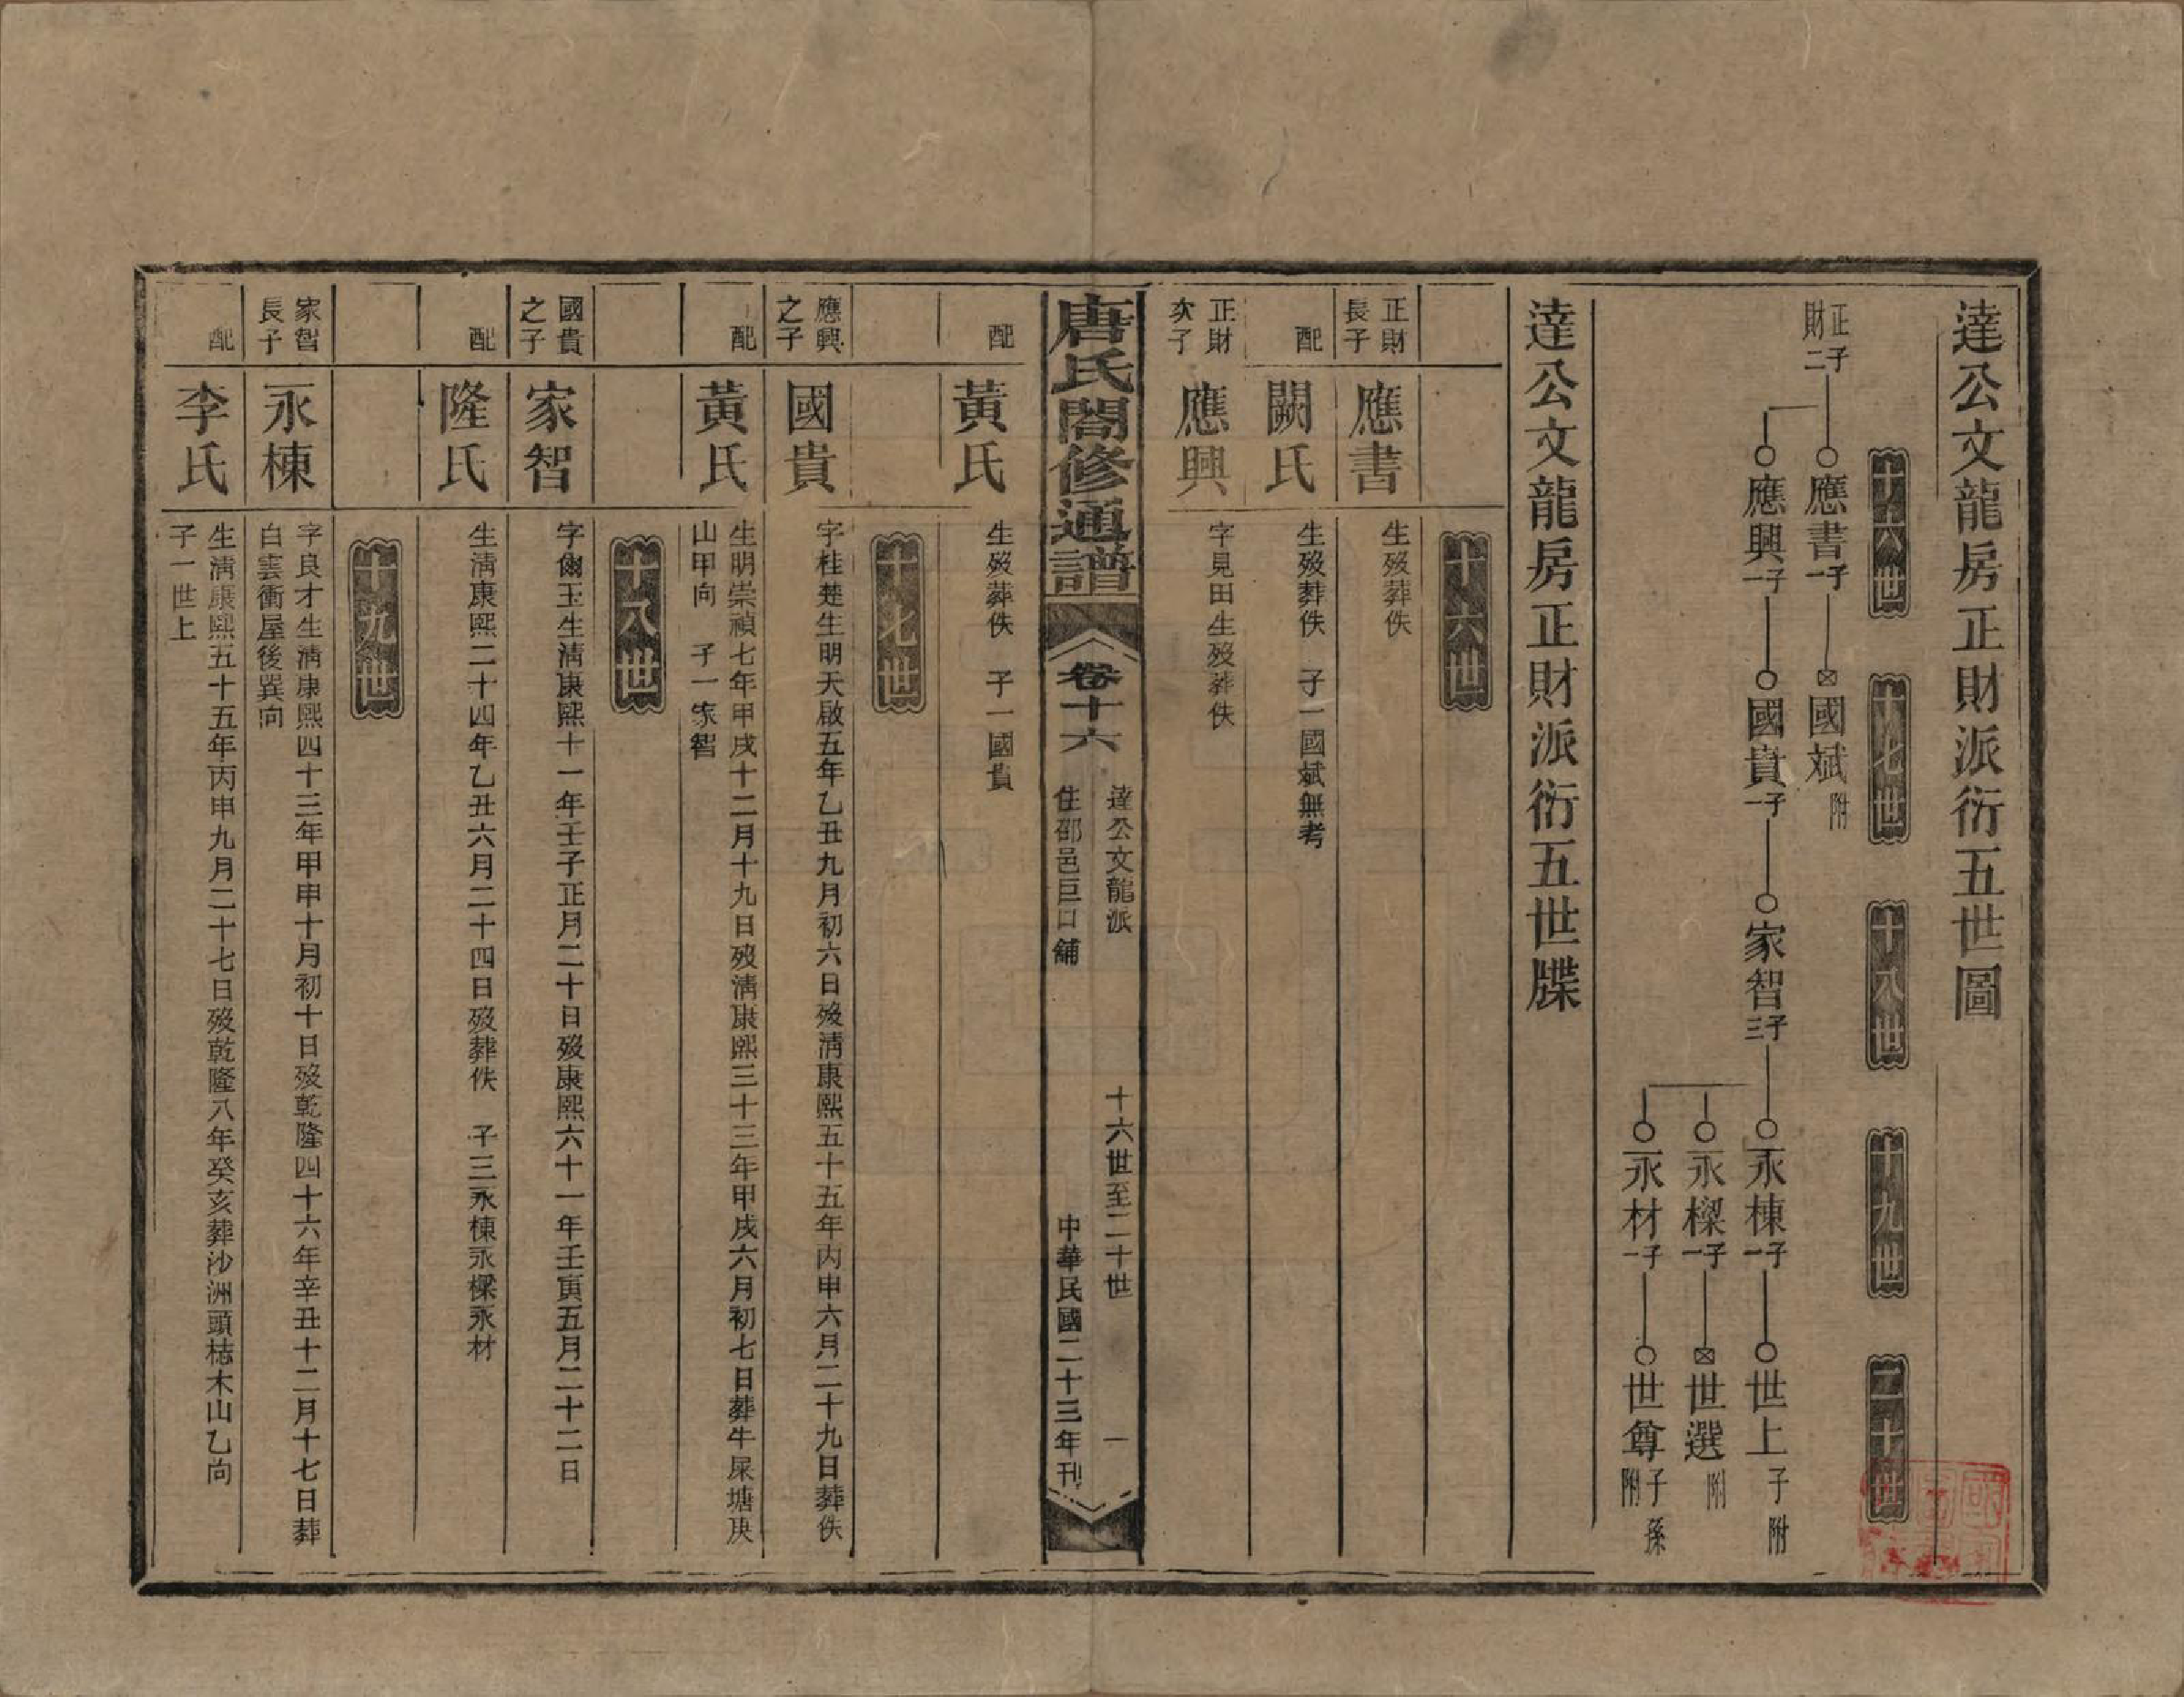 達公文龍房正財派衍五世圖
十六世
十七世
十八世
十九世
二十世
正財二子
應書一子
國斌附
應興一子
國貴一子
家智三子
永棟一子
世上子附
永樑一子
世選附
永材一子
世尊子孫附
達公文龍房正財派衍五世牒
十六世
正財長子
應書
生歿葬佚
配
闕氏
生歿葬佚 子一國斌無考
正財次子
應興
字見田生歿葬佚
唐氏閤修通譜
卷十六
達公文龍派
住邵邑巨口舖
十六世至二十世
一
中華民國二十三年刊
配
黃氏
生歿葬佚 子一國貴
十七世
應興之子
國貴
字桂楚生明天啟五年乙丑九月初六日歿清康熙五十五年丙申六月二十九日葬佚
配
黃氏
生明崇禎七年甲戌十二月十九日歿清康熙三十三年甲戌六月初七日葬牛屎塘庚
山甲向 子一家智
十八世
國貴之子
家智
字爾玉生清康熙十一年壬子正月二十日歿康熙六十一年壬寅五月二十二日
配
隆氏
生清康熙二十四年乙丑六月二十四日歿葬佚 子三永棟永樑永材
十九世
家智長子
永棟
字良才生清康熙四十三年甲申十月初十日歿乾隆四十六年辛丑十二月十七日葬
白雲衝屋後巽向
配
李氏
生清康熙五十五年丙申九月二十七日歿乾隆八年癸亥葬沙洲頭梽木山乙向
子一世上